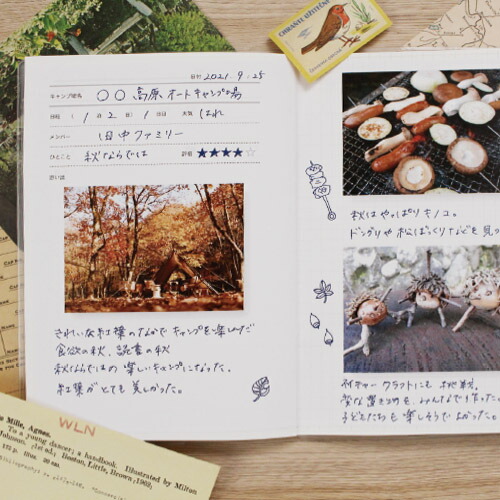 日付 2021.9.25
キャンプ場名 ○○高原オートキャンプ場
日程 1泊2日/1日目 天気 はれ
メンバー 田中ファミリー
ひとこと 秋ならでは 評価 ★★★★☆
思い出
きれいな紅葉のなかでキャンプを楽しんだ
食欲の秋、読書の秋
秋ならではの楽しいキャンプになった。
紅葉がとても美しかった。
秋はやっぱりキノコ。
ドングリや松ぼっくりなどを見つ
ネイチャークラフトにも挑戦。
変な置きものを、みんなで作った。
子どもたちも楽しそうでよかった。
CHRAŇTE UŽITEČNÉ
WLN
Mille, Agnes.
To a young dancer; a handbook. Illustrated by Milton
Johnson. [1st ed.] Boston, Little, Brown [1962]